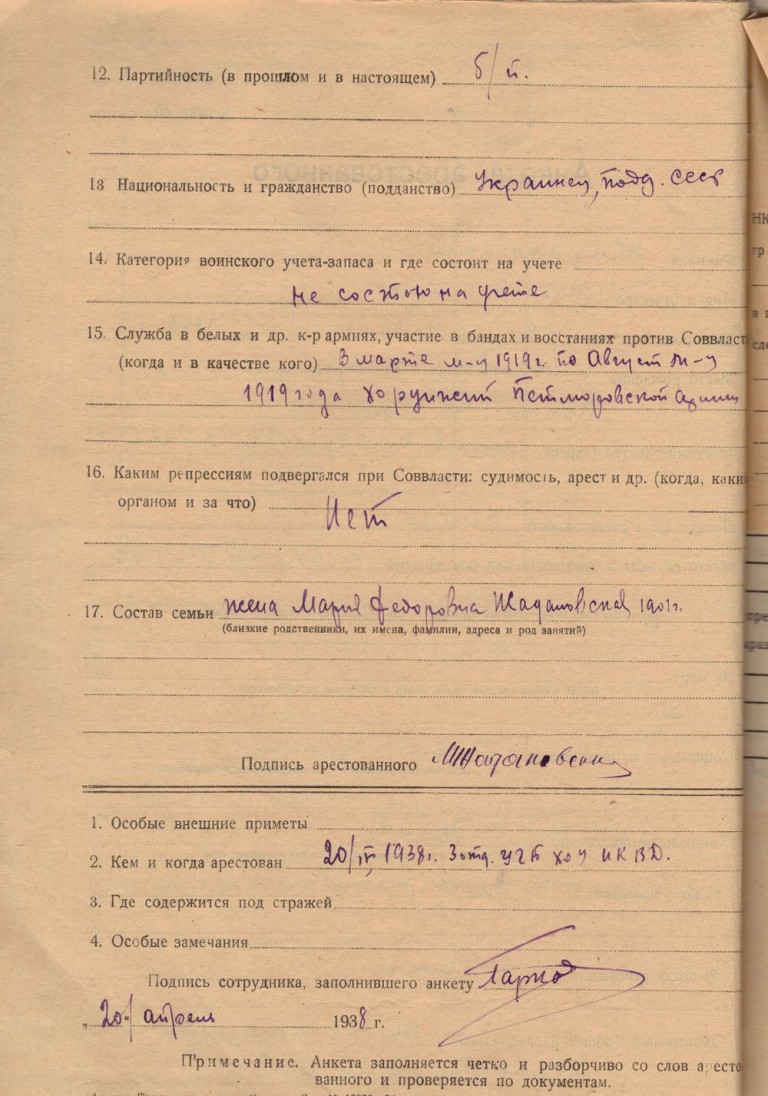 12. Партийность (в прошлом и в настоящем) б/п.
13 Национальность и гражданство (подданство) Украинец, подд. СССР
14. Категория воинского учета-запаса и где состоит на учете
Не состою на учете
15. Служба в белых и др. к-р армиях, участие в бандах и восстаниях против Соввласт
(когда и в качестве кого) В марте м-ц 1919 г. по Август м-ц
1919 года хорунжий Петлюровской армии
16. Каким репрессиям подвергался при Соввласти: судимость, арест и др. (когда, каки
органом и за что) Нет
17. Состав семьи жена Мария Федоровна Жадановская 1901 г.
(близкие родственники, их имена, фамилии, адреса и род занятий)
Подпись арестованного Жадановский
1. Особые внешние приметы
2. Кем и когда арестован 20/IV 1938 г. 3 отд. УГБ ХОУ НКВД.
3. Где содержится под стражей
4. Особые замечания
Подпись сотрудника, заполнившего анкету
„20" апреля 1938 г.
Примечание. Анкета заполняется четко и разборчиво со слов аресто
ванного и проверяется по документам.